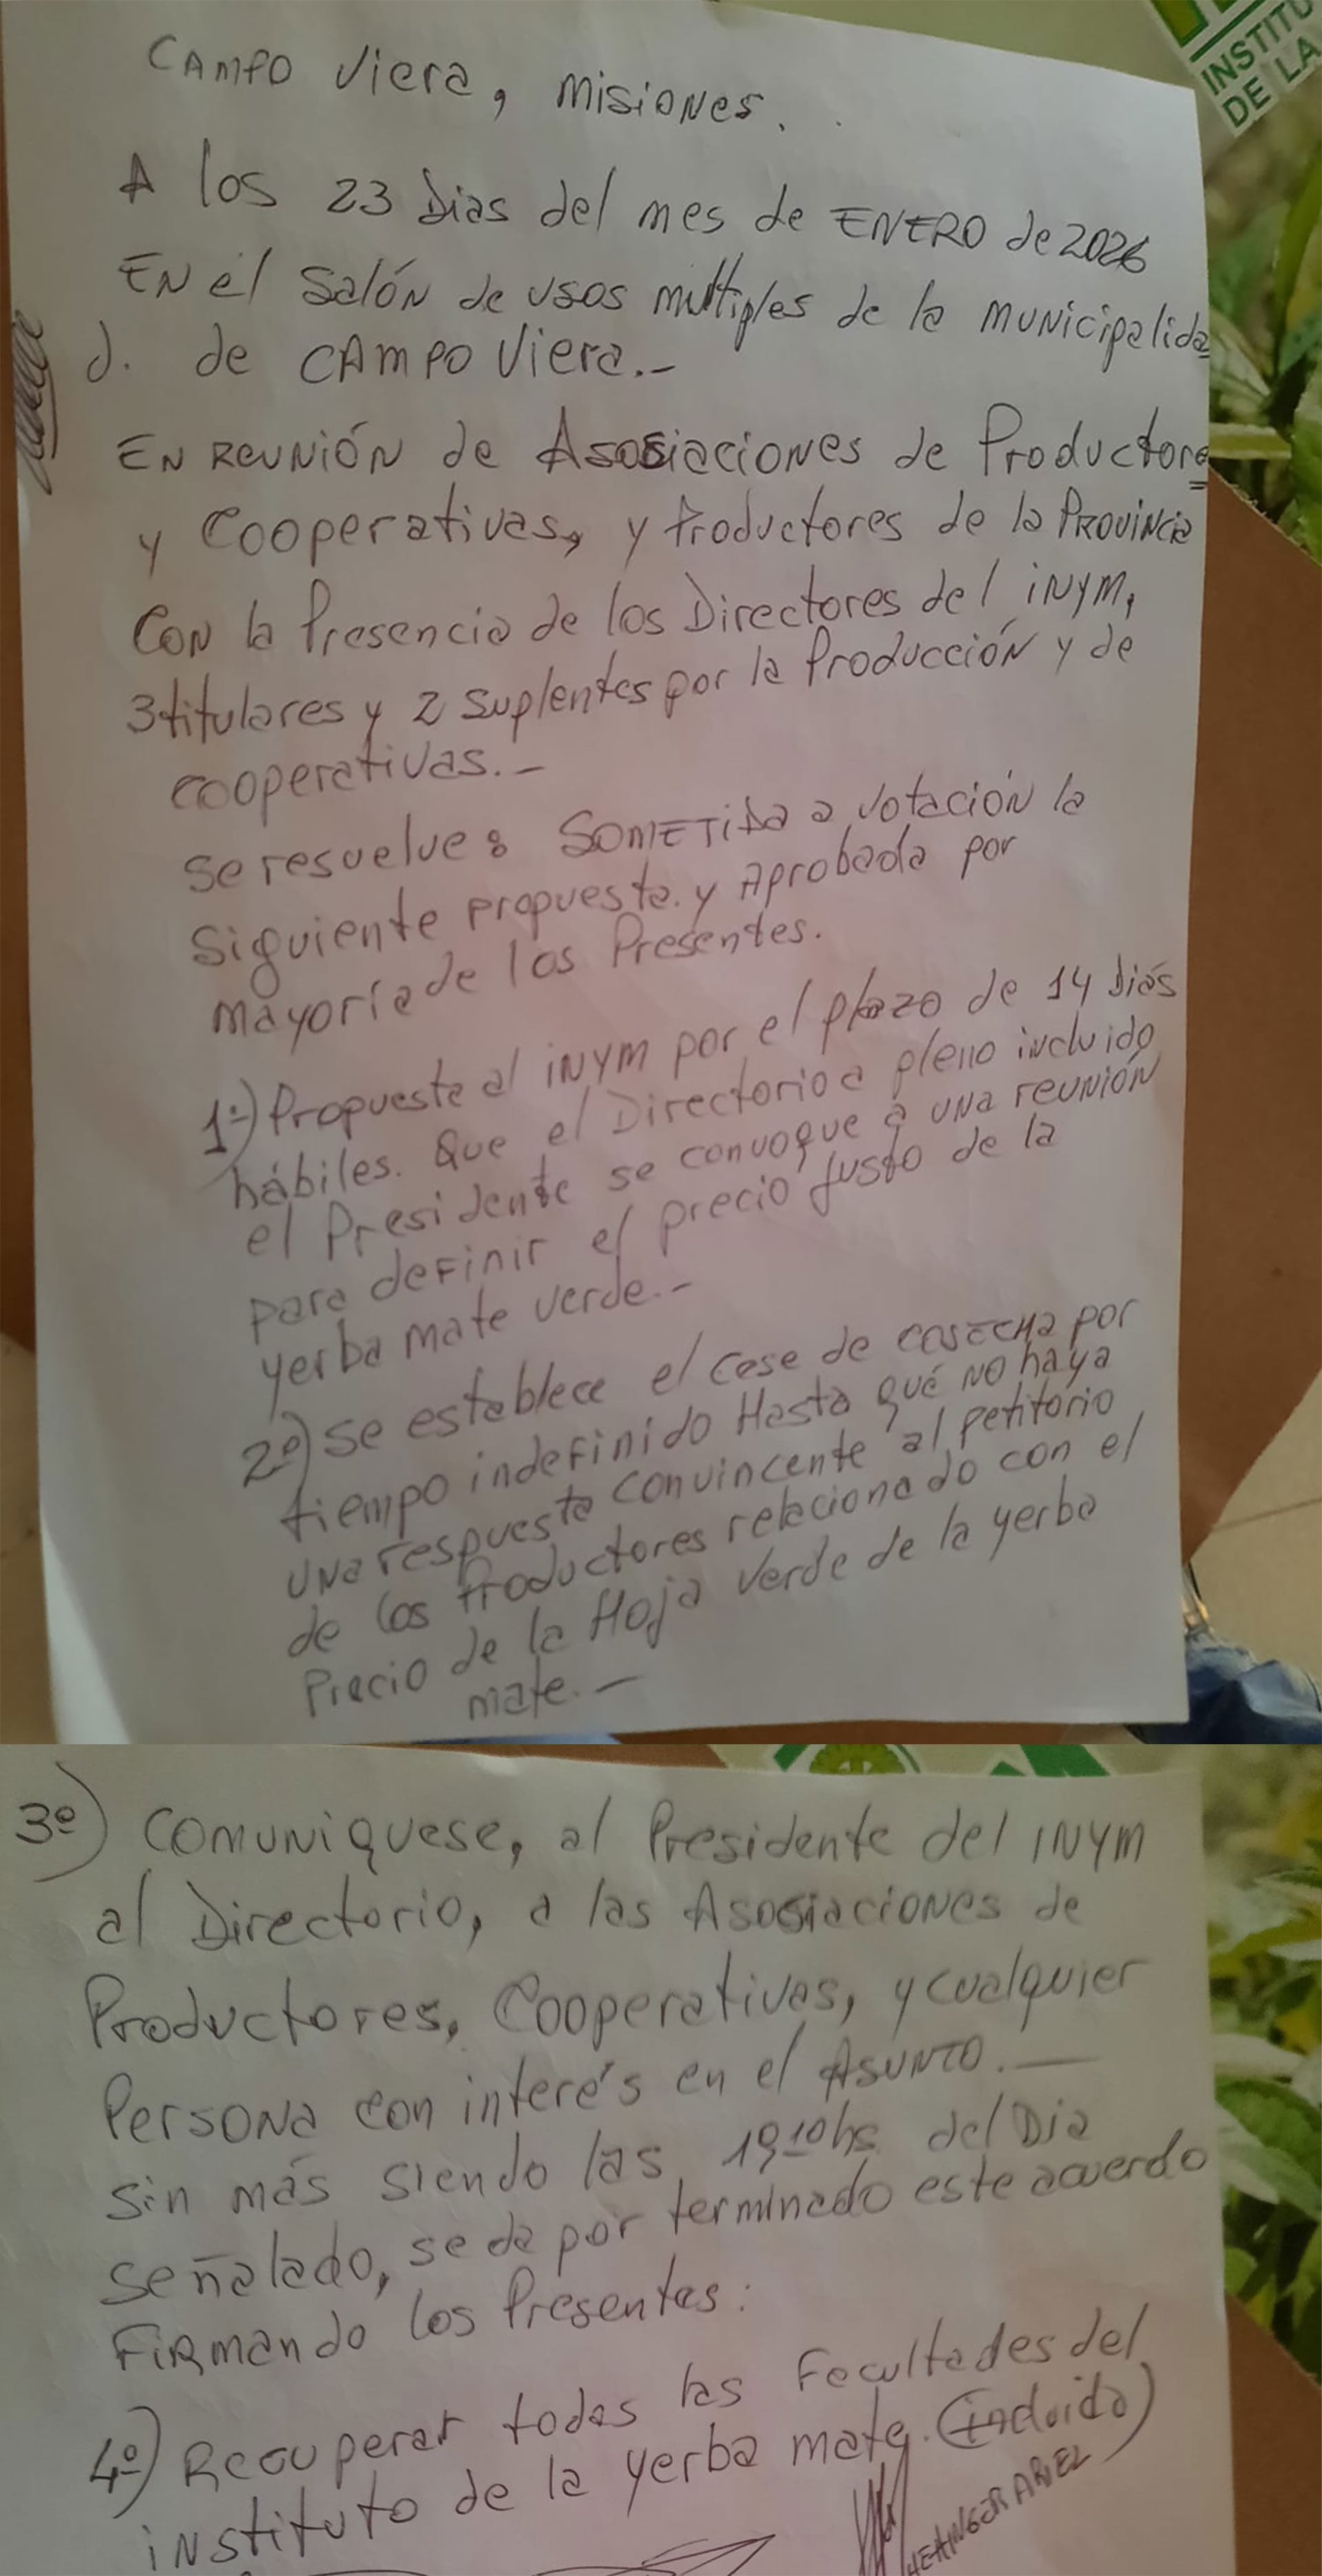 INSTITU
DE LA
CAMPO Viera, MISIONES.
A los 23 Dias del mes de ENERO de 2026
EN el Salón de usos multiples de la MUNICIPALIDA
d. de CAMPO Viera.-
EN REUNIÓN de Asosiaciones de Productores
y Cooperativas, y Productores de la PROVINCIA
CON la Presencia de los Directores del INYM,
3 titulares y 2 suplentes por la Producción y de
cooperativas.-
se resuelve: SOMETIDA a votación la
siguiente propuesta. y Aprobada por
mayoría de los Presentes.
1º) Propuesta al INYM por el plazo de 14 Diás
hábiles. Que el Directorio a pleno incluido
el Presidente se convoque a una reunión
para definir el precio justo de la
yerba mate verde.-
2º) Se establece el cese de COSECHA por
tiempo indefinido Hasta qué NO haya
una respuesta convincente al petitorio
de los Productores relacionado con el
Precio de la Hoja Verde de la yerba
mate.-
3º) COMUNIQUESE, al Presidente del INYM
al Directorio, a las Asosiaciones de
Productores, Cooperativas, y cualquier
Persona con interés en el ASUNTO.—
sin más siendo las 19 10 hs del Dia
señalado, se da por terminado este acuerdo
FIRMANDO los Presentes:
4º) Recuperar todas las Facultades del
instituto de la yerba mate. (incluido)
ARIEL